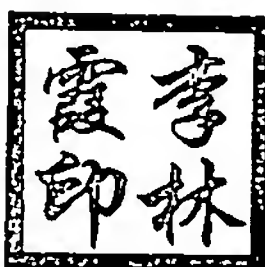 李林
霞印